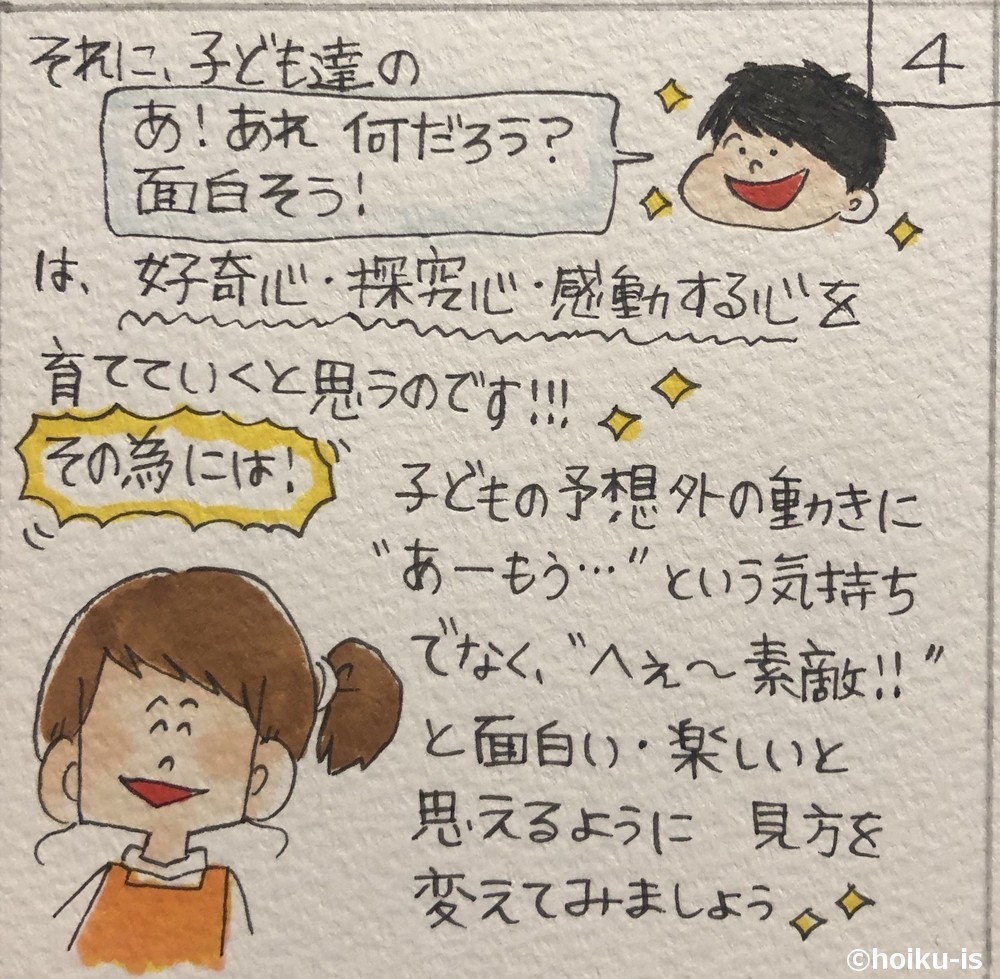 4
それに、子ども達の
あ！あれ 何だろう？
面白そう！
は、好奇心・探究心・感動する心を
育てていくと思うのです!!!
その為には！
子どもの予想外の動きに
"あーもう…"という気持ち
でなく、"へぇ～素敵!!"
と面白い・楽しいと
思えるように 見方を
変えてみましょう
©hoiku-is